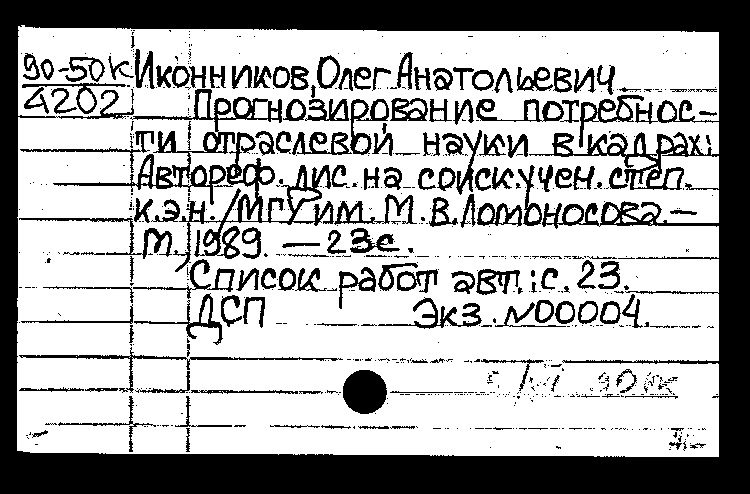 90-50К Иконников, Олег Анатольевич
4202 Прогнозирование потребнос-
ти отраслевой науки в кадрах:
Автореф. дис. на соиск. учен. степ.
к.э.н. / МГУ им. М. В. Ломоносова. —
М., 1989. — 23с.
Список работ авт.: с. 23.
ДСП Экз. №00004.